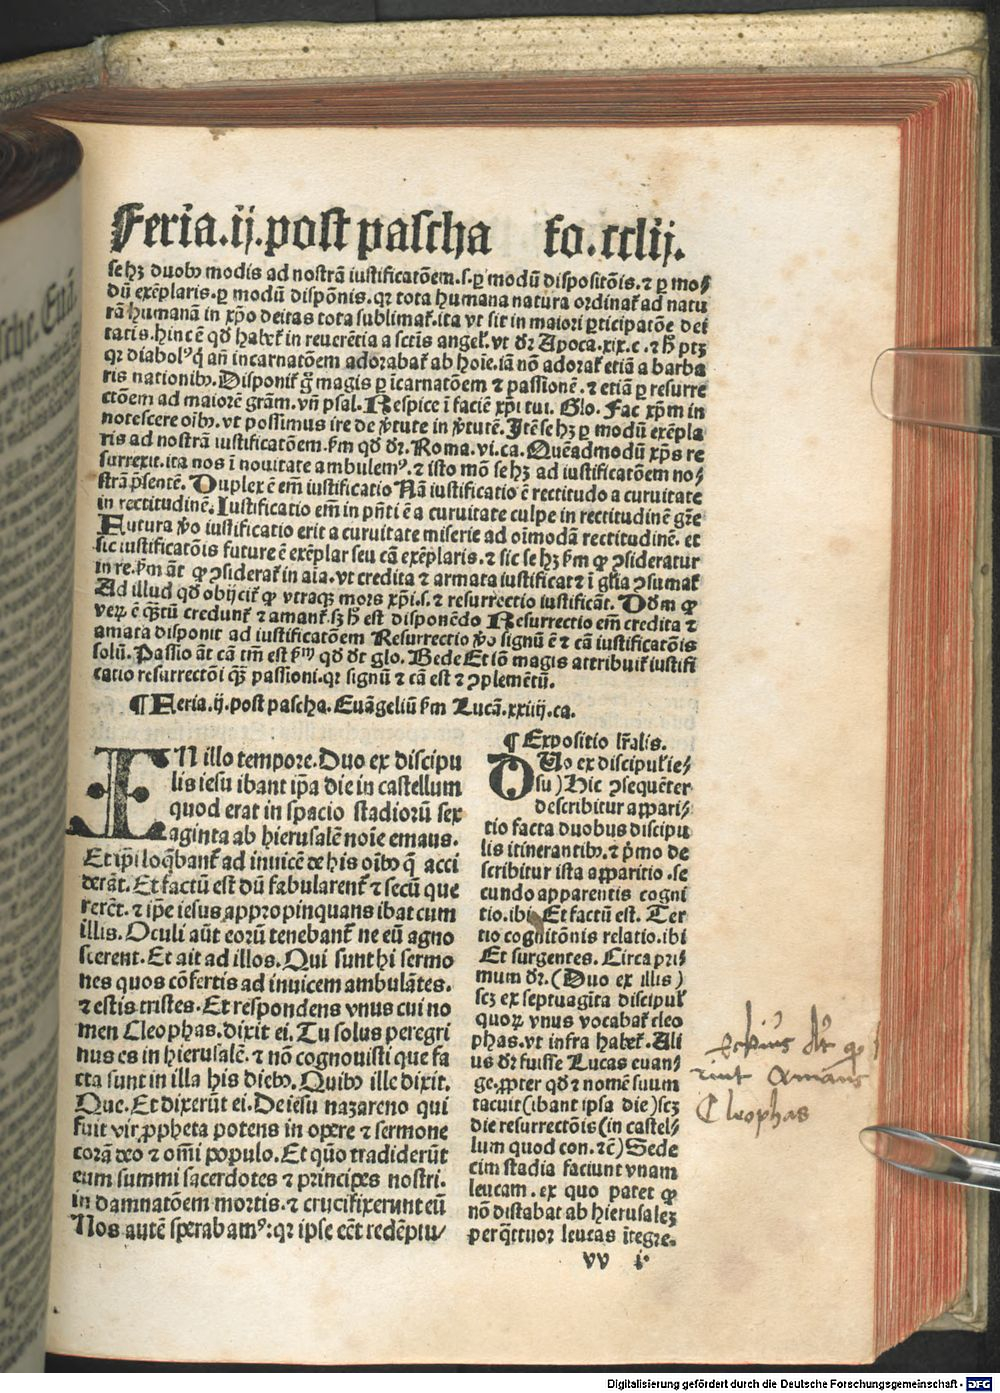 Feria.ij.post pascha fo.cclij.
se hꝫ duobꝰ modis ad nostrã iustificatõem.s.ꝑ modũ dispositõis.⁊ ꝑ mo⸗
dũ exẽplaris.ꝑ modũ dispõnis.qꝛ tota humana natura ordinat̃ ad natu
rã humanã in xp̃o deitas tota sublimat̃.ita vt sit in maiori ꝑticipatõe dei
tatis.hinc ẽ qd̃ habet̃ in reuerẽtia a sctis angel̃.vt dr̃ Apoca.xix.c.⁊ h̃ ptꝫ
qꝛ diabolꝰ q̃ añ incarnatõem adorabat̃ ab hoĩe.iã nõ adorat̃ etiã a barba
ris nationibꝰ.Disponit̃ g̃ magis ꝑ ĩcarnatõem ⁊ passionẽ.⁊ etiã ꝑ resurre
ctõem ad maiorẽ grãm.vñ psal.Respice ĩ faciẽ xp̃i tui. Glo. Fac xp̃m in
notescere oĩbꝰ.vt possimus ire de ṽtute in ṽtutẽ.Itẽ se hꝫ ꝑ modũ exẽpla
ris ad nostrã iustificatõem.ẜm qd̃ dr̃.Roma.vi.ca.Quẽadmodũ xp̃s re
surrexit.ita nos ĩ nouitate ambulemꝰ.⁊ isto mõ se hꝫ ad iustificatõem no⸗
strã p̃sentẽ.Duplex ẽ em̃ iustificatio Nã iustificatio ẽ rectitudo a curuitate
in rectitudinẽ.Iustificatio em̃ in pñti ẽ a curuitate culpe in rectitudinẽ gr̃e
Futura ṽo iustificatio erit a curuitate miserie ad oĩmodã rectitudinẽ. et
sic iustificatõis future ẽ exẽplar seu cã exẽplaris.⁊ sic se hꝫ ẜm ꝙ ꝯsideratur
in re.ẜm ãt ꝙ ꝯsiderat̃ in aĩa.vt credita ⁊ armata iustificat ⁊ ĩ glĩa ꝯsumat̃
Ad illud qd̃ obijcit̃ ꝙ vtraqꝫ mors xp̃i.s.⁊ resurrectio iustificãt. Dd̃m ꝙ
veꝝ ẽ q̃ꝫtũ credunt̃ ⁊ amant̃.sꝫ h̃ est disponẽdo Resurrectio em̃ credita ⁊
amata disponit ad iustificatõem Resurrectio ṽo signũ ẽ ⁊ cã iustificatõis
solũ. Passio ãt cã tm̃ est ẜm qd̃ dt̃ glo. Bede Et iõ magis attribuit̃ iustifi
catio resurrectõi qꝫ̃ passioni.qꝛ signũ ⁊ cã est ⁊ ꝯplemẽtũ.
¶ Feria.ij.post pascha. Euãgeliũ ẜm Lucã.xxiiij.ca.
IN illo tempore.Duo ex discipu
lis iesu ibant ip̃a die in castellum
quod erat in spacio stadiorũ sex
aginta ab hierusalẽ noĩe emaus.
Et ip̃i loq̃bant̃ ad inuicẽ de his oĩbꝰ q̃ acci
derãt.Et factũ est dũ fabularent̃ ⁊ secũ que
rerẽt.⁊ ip̃e iesus appropinquans ibat cum
illis.Oculi aũt eorũ tenebant̃ ne eũ agno
scerent.Et ait ad illos.Qui sunt hi sermo
nes quos cõfertis ad inuicem ambulãtes.
⁊ estis tristes.Et respondens vnus cui no
men Cleophas.dixit ei.Tu solus peregri
nus es in hierusalẽ.⁊ nõ cognouisti que fa
cta sunt in illa his diebꝰ.Quibꝰ ille dixit.
Que.Et dixerũt ei.De iesu nazareno qui
fuit vir ꝓpheta potens in opere ⁊ sermone
corã deo ⁊ om̃i populo.Et quõ tradiderũt
eum summi sacerdotes ⁊ principes nostri.
in damnatõem mortis.⁊ crucifixerunt eũ
Nos autẽ sperabamꝰ:qꝛ ipse eẽt redẽptu⸗
¶ Expositio lr̃alis.
Duo ex discipul̃ ie⸗
su) Hic ꝯsequẽter
describitur appari⸗
tio facta duobus discipu
lis itinerantibꝰ.⁊ p̃mo de
scribitur ista apparitio.se
cundo apparentis cogni
tio.ibi. Et factũ est. Ter
tio cognitõnis relatio.ibi
Et surgentes. Circa pri⸗
mum dr̃.(Duo ex illis)
scꝫ ex septuagĩta discipul̃
quoꝝ vnus vocabat̃ cleo
phas.vt infra habet̃.Ali
us dr̃ fuisse Lucas euan⸗
ge.ꝓpter qd̃ ⁊ nomẽ suum
tacuit(ibant ipsa die)scꝫ
die resurrectõis(in castel⸗
lum quod con.⁊c̃)Sede
cim stadia faciunt vnam
leucam.ex quo patet ꝙ
nõ distabat ab hierusalẽ
per q̃ttuor leucas ĩtegre.
vv i
Cleophas
Digitalisierung gefördert durch die Deutsche Forschungsgemeinschaft - DFG